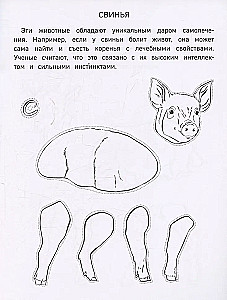 СВИНЬЯ
Эти животные обладают уникальным даром самолече-
ния. Например, если у свиньи болит живот, она может
сама найти и съесть коренья с лечебными свойствами.
Ученые считают, что это связано с их высоким интеллек-
том и сильными инстинктами.